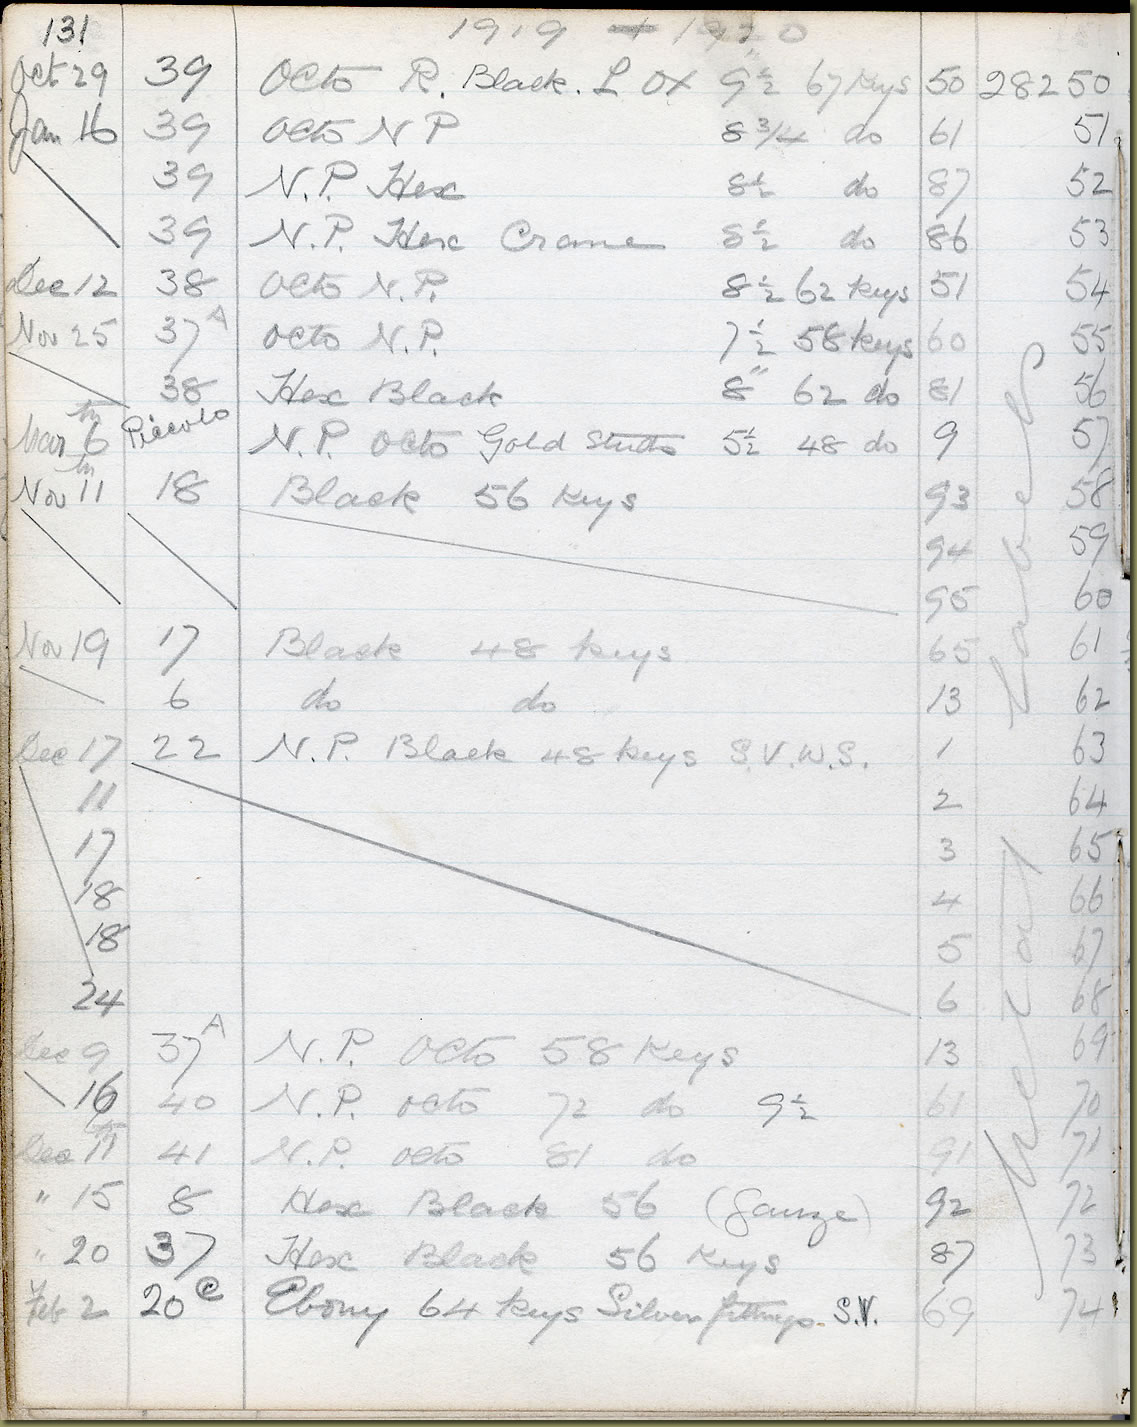 131 1919 + 1920
Oct 29 39 Octo R. Black. L OX 9½ 67 Keys 50 28250
Jan 16 39 Octo N P 8 3/4 do 61 51
39 N.P. Hex 8½ do 87 52
39 N.P. Hex Crane 8½ do 86 53
Dec 12 38 Octo N.P. 8½ 62 keys 51 54
Nov 25 37A Octo N.P. 7½ 58 keys 60 55
38 Hex Black 8" 62 do 81 56
Mar 6th Piccolo N.P. Octo Gold Studs 5½ 48 do 9 57
Nov 11th 18 Black 56 keys 93 58
94 59
95 60
Nov 19 17 Black 48 keys 65 61
6 do do 13 62
Dec 17 22 N.P. Black 48 keys S.V.W.S. 1 63
11 2 64
17 3 65
18 4 66
18 5 67
24 6 68
Dec 9 37A N.P. Octo 58 Keys 13 69
16 40 N.P. octo 72 do 9½ 61 70
Dec 11th 41 N.P. octo 81 do 91 71
" 15 8 Hex Black 56 (Gauze) 92 72
" 20 37 Hex Black 56 Keys 87 73
Feb 2 20C Ebony 64 keys Silver fittings. S.V. 69 74